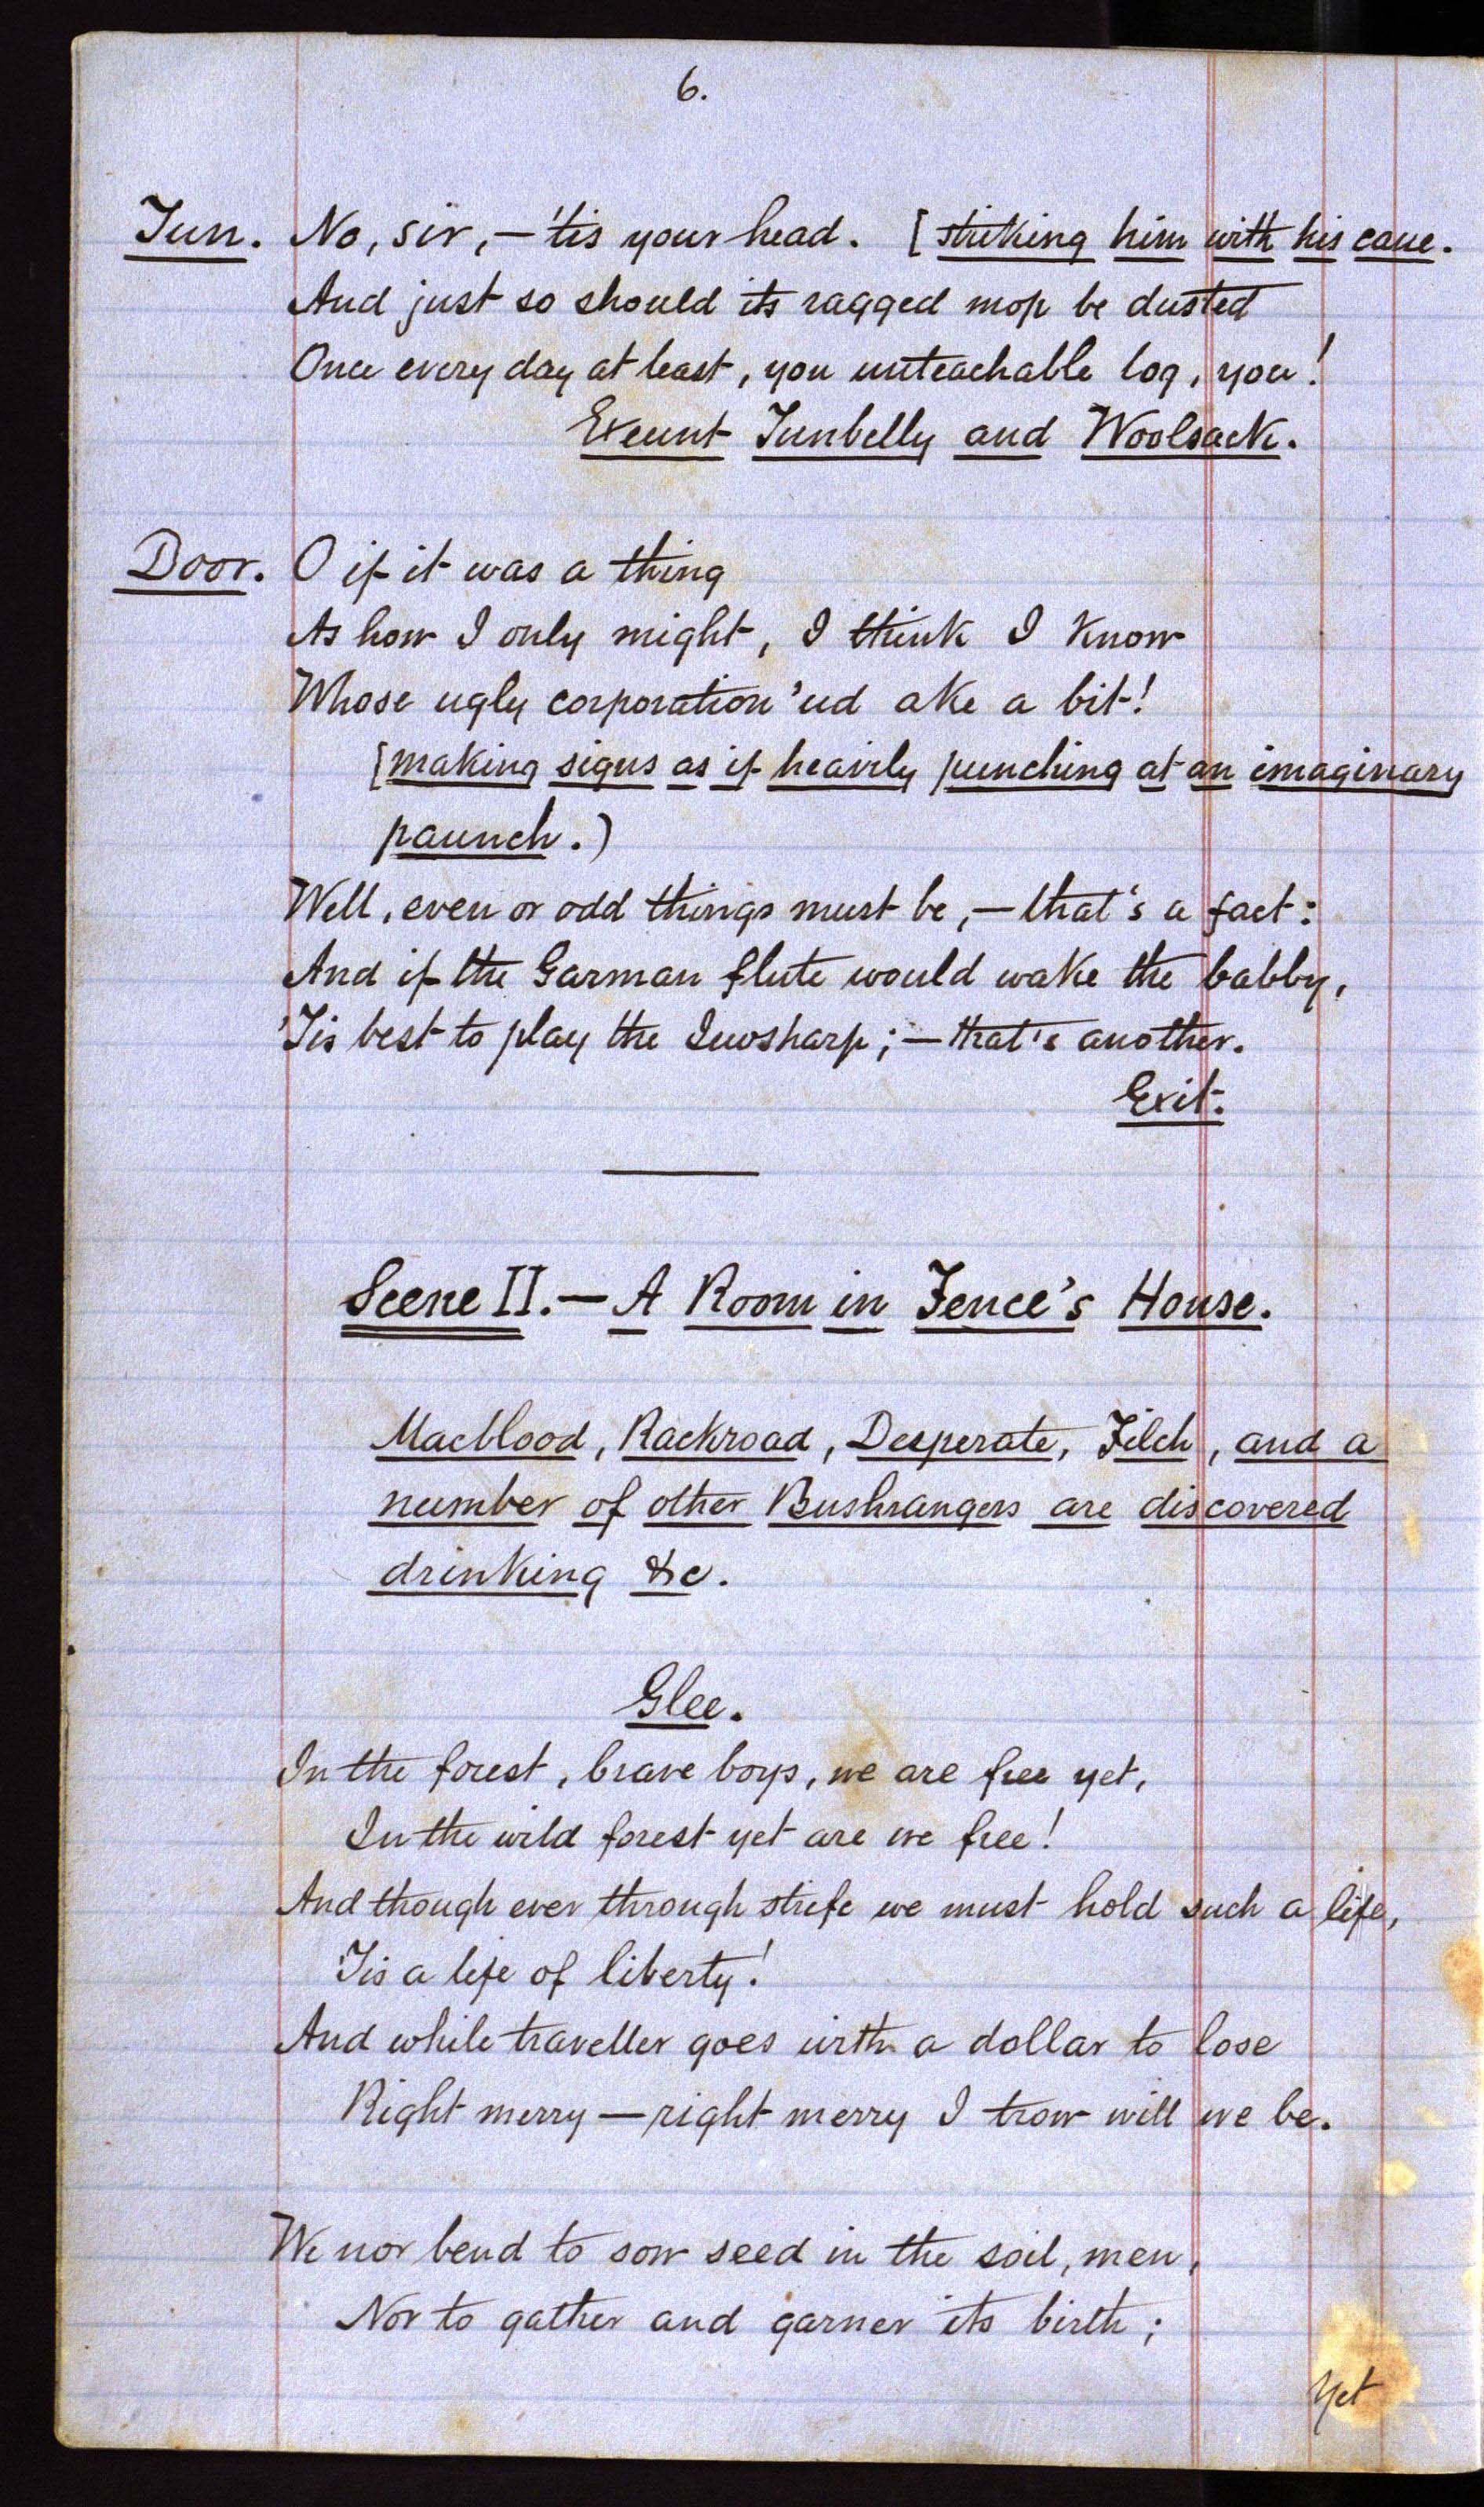 6.
Tun. No, sir, — 'tis your head. [striking him with his cane.
And just so should its ragged mop be dusted
Once every day at least, you unteachable log, you!
Exeunt Tunbelly and Woolsack.
Door. O if it was a thing
As how I only might, I think I know
Whose ugly corporation 'ud ake a bit!
[making signs as if heavily punching at an imaginary
paunch.)
Well, even or odd things must be, — that's a fact:
And if the Garman flute would wake the babby,
'Tis best to play the Juwsharp; — that's another.
Exit.
Scene II. — A Room in Fence's House.
Macblood, Rackroad, Desperate, Filch, and a
number of other Bushrangers are discovered
drinking &c.
Glee.
In the forest, brave boys, we are free yet,
In the wild forest yet are we free!
And though ever through strife we must hold such a life,
'Tis a life of liberty!
And while traveller goes with a dollar to lose
Right merry — right merry I trow will we be.
We nor bend to sow seed in the soil, men,
Nor to gather and garner its birth;
Yet